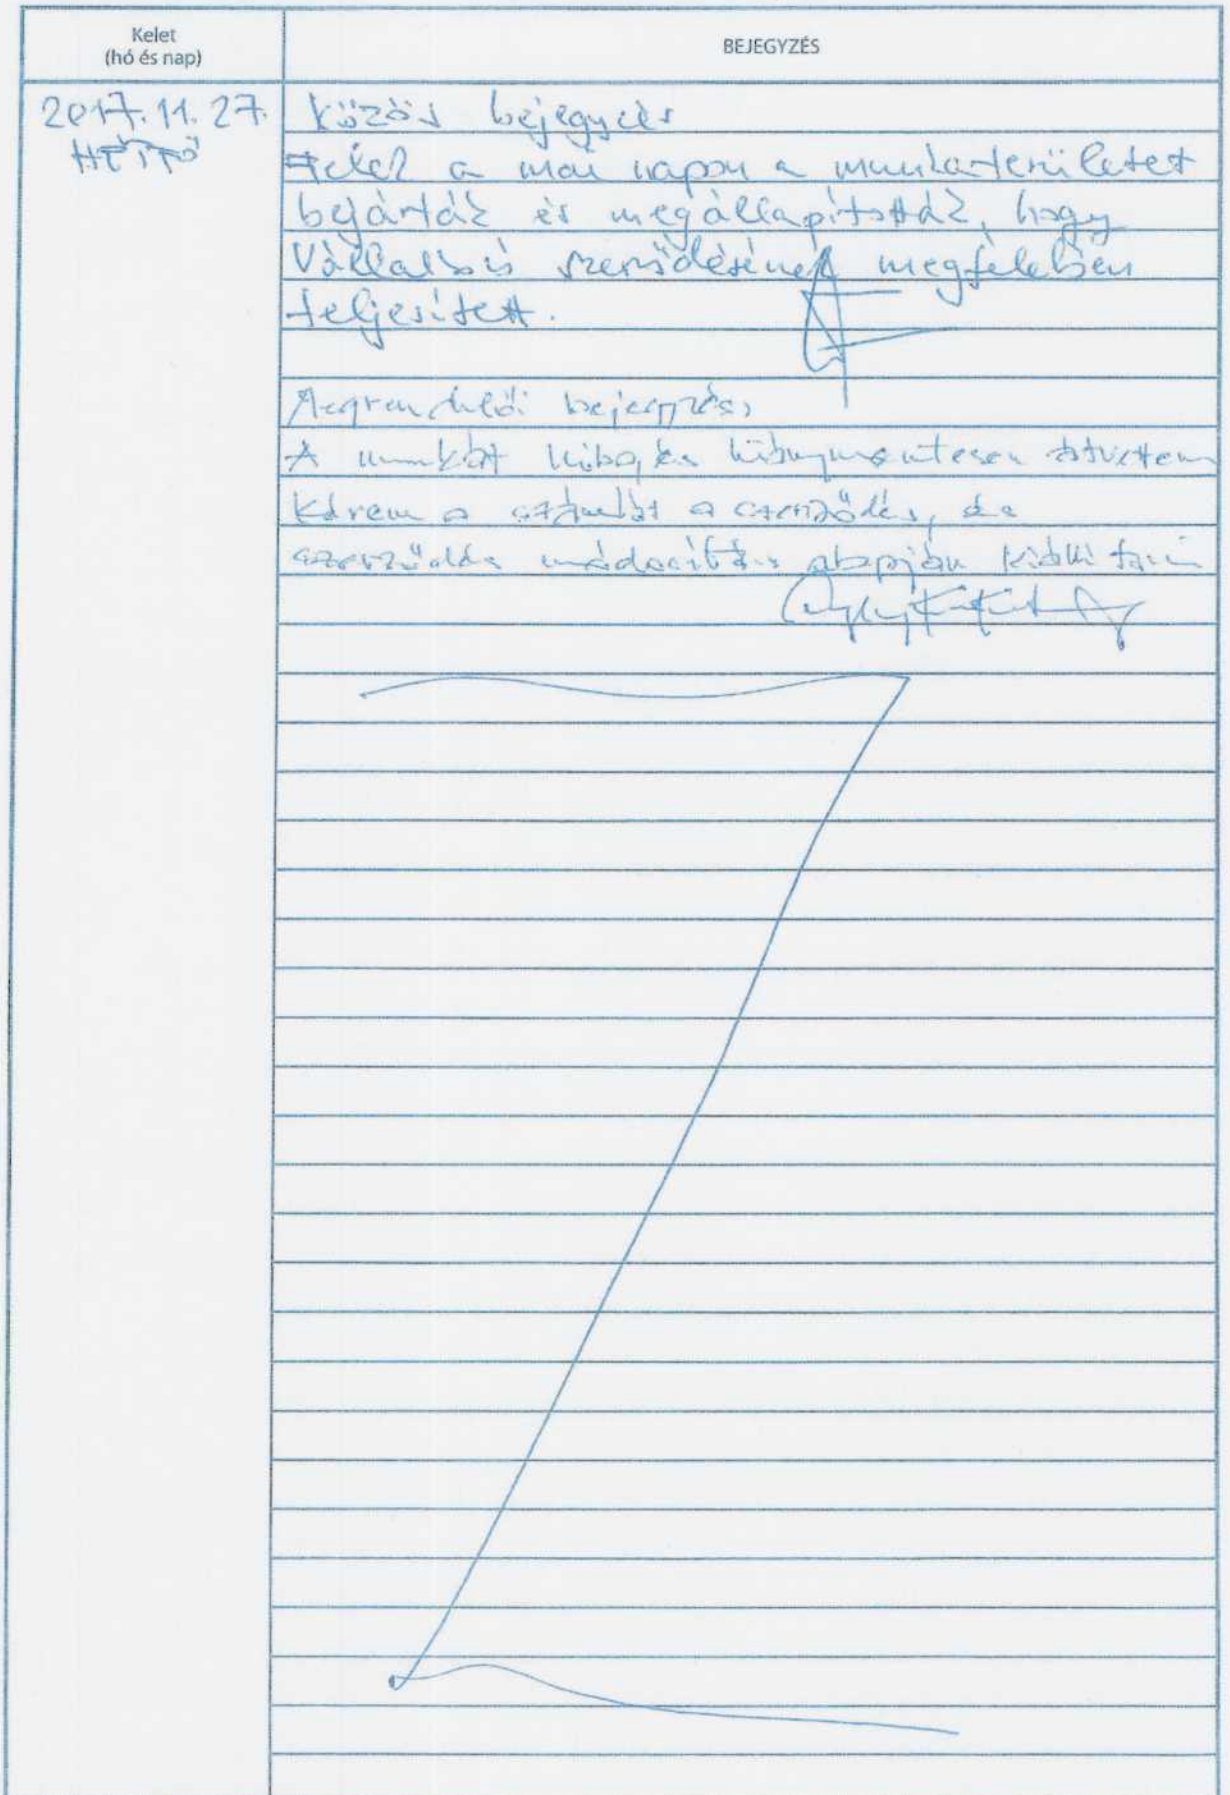 Kelet
(hó és nap)
BEJEGYZÉS
2017.11.27.
HÉTFŐ
Közös bejegyzés
Felek a mai napon a munkaterületet
bejárták és megállapították, hogy
Vállalkozó szerződésének megfelelően
teljesített.
Megrendelői bejegyzés,
A munkát hiba, és hiánymentesen átvettem
Kérem a számlát a szerződés, és a
szerződés módosítás alapján kiállítani